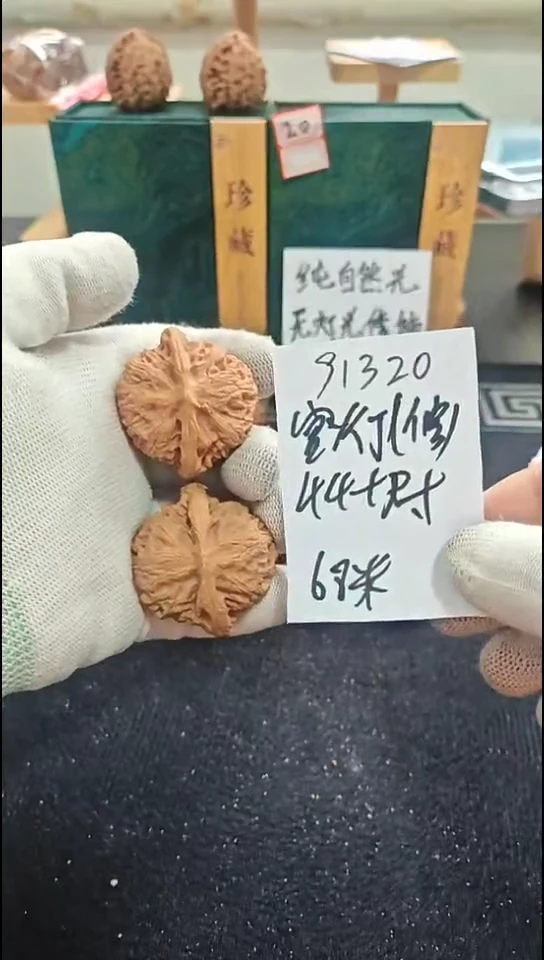 20
珍藏
珍藏
纯自然光
无灯光
91320
宫灯(修)
44+尺寸
69米